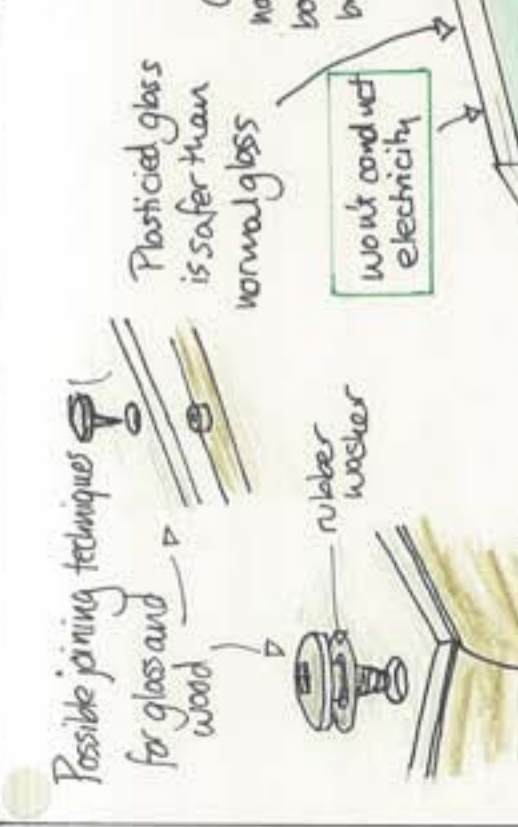 Possible joining techniques
for glass and
wood
rubber
washer
Plasticied glass
is safer than
normal glass
won't conduct
electricity